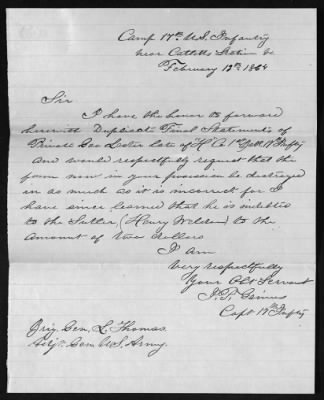 Camp 17th U.S. Infantry
near Catletts Station Va
February 12th 1864
Sir
I have the honor to forward
herewith Duplicate Final Statements of
Private Geo late of "H" Co. 1st Batt 17th Infty
and would respectfully request that the
form now in your possession be destroyed
in as much as it is incorrect for I
have since learned that he is indebted
to the Sutler, (Henry Wilson) to the
amount of two dollars
I am
very respectfully
Your Obt Servant
Capt 17th Infty
Brig. Gen. L. Thomas
Adjt. Gen. U.S. Army.